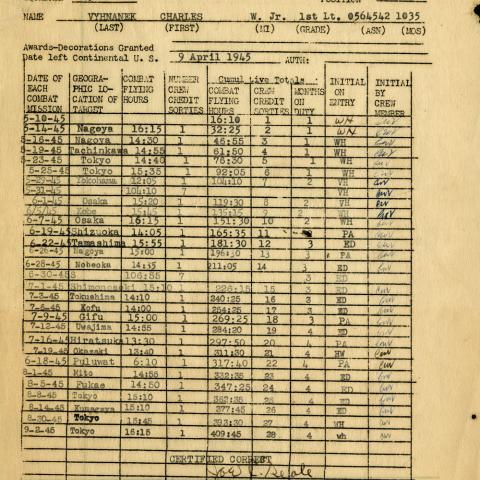 NAME VYHNANEK CHARLES W. Jr. 1st Lt. 0564542 1035
(LAST) (FIRST) (MI) (GRADE) (ASN) (MOS)
Awards-Decorations Granted
Date left Continental U. S. 9 April 1945 AUTH:
DATE OF EACH COMBAT MISSION GEOGRAPHIC LOCATION OF TARGET COMBAT FLYING HOURS NUMBER CREW CREDIT SORTIES Cumulative Totals COMBAT FLYING HOURS CREW CREDIT SORTIES MONTHS ON DUTY INITIAL ON ENTRY INITIAL BY CREW MEMBER
5-10-45 16:10 1 1 WH
5-14-45 Nagoya 16:15 1 32:25 2 1 WH
5-16-45 Nagoya 14:30 1 46:55 3 1 WH
5-19-45 Tachinkawa 14:55 1 61:50 4 1 WH
5-23-45 Tokyo 14:40 1 76:30 5 1 WH
5-25-45 Tokyo 15:35 1 92:05 6 1 WH
5-29-45 Yokohama 12:05 1 104:10 7 2 VH
5-31-45 104:10 7 VH
6-1-45 Osaka 15:20 1 119:30 8 2 VH
6/5/45 Kobe 15:45 1 135:15 9 2 VH
6-7-45 Osaka 16:15 1 151:30 10 2 WH
6-19-45 Shizuoka 14:05 1 165:35 11 PA
6-22-45 Tamashima 15:55 1 181:30 12 3 ED
6-26-45 Nagoya 15:00 1 196:30 13 3 PA
6-28-45 Nobeoka 14:35 1 211:05 14 3 ED
6-30-45 106:55 7 3 ED
7-1-45 Shimonoseki 15:10 1 226:15 15 3 ED
7-3-45 Tokushima 14:10 1 240:25 16 3 ED
7-6-45 Kofu 14:00 1 254:25 17 3 ED
7-9-45 Gifu 15:00 1 269:25 18 3 PA
7-12-45 Uwajima 14:55 1 284:20 19 4 ED
7-16-45 Hiratsuka 13:30 1 297:50 20 4 PA
7-19-45 Okazaki 13:40 1 311:30 21 4 HW
6-18-45 Puluwat 6:10 1 317:40 22 4 PA
8-1-45 Mito 14:55 1 332:35 23 4 ED
8-5-45 Fukae 14:50 1 347:25 24 4 ED
8-8-45 Tokyo 15:10 1 362:35 25 4 ED
8-14-45 Kumagaya 15:10 1 377:45 26 4 ED
8-30-45 Tokyo 15:45 1 393:30 27 4 WH
9-2-45 Tokyo 16:15 1 409:45 28 4 wh
CERTIFIED CORRECT